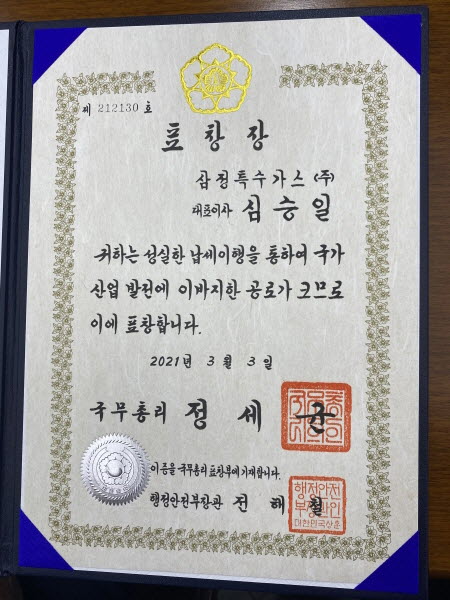 제 212130 호
표창장
삼정특수가스 (주)
대표이사 심승일
귀하는 성실한 납세이행을 통하여 국가
산업 발전에 이바지한 공로가 크므로
이에 표창합니다.
2021년 3월 3일
국무총리 정세균
이 증을 국무총리 표창부에 기재합니다.
행정안전부장관 전해철
행정안전
부장관인
대한민국상훈